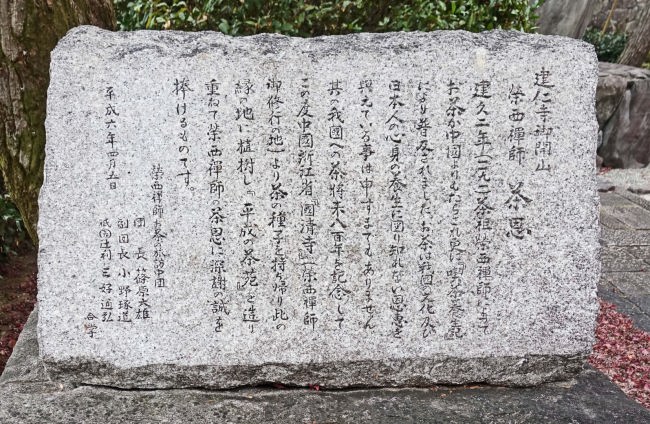 建仁寺御開山
栄西禅師 茶恩
建久二年(一一九一)茶祖栄西禅師によって
お茶が中国よりもたらされ更に喫茶養生記
により普及されました。お茶は我国の文化及び
日本人の心身の養生に図り知れない恩恵を
与えている事は申すまでもありません
其の我国への茶将来八百年を記念して
この度中国浙江省「国清寺」(栄西禅師
御修行の地)より茶の種子を持ち帰り此の
縁の地に植樹し「平成の茶苑」と造り
重ねて栄西禅師の茶恩に深謝の誠を
捧げるものです。
平成六年四月五日
栄西禅師
団長 篠原大雄
副団長 小野琢道
三好
合掌